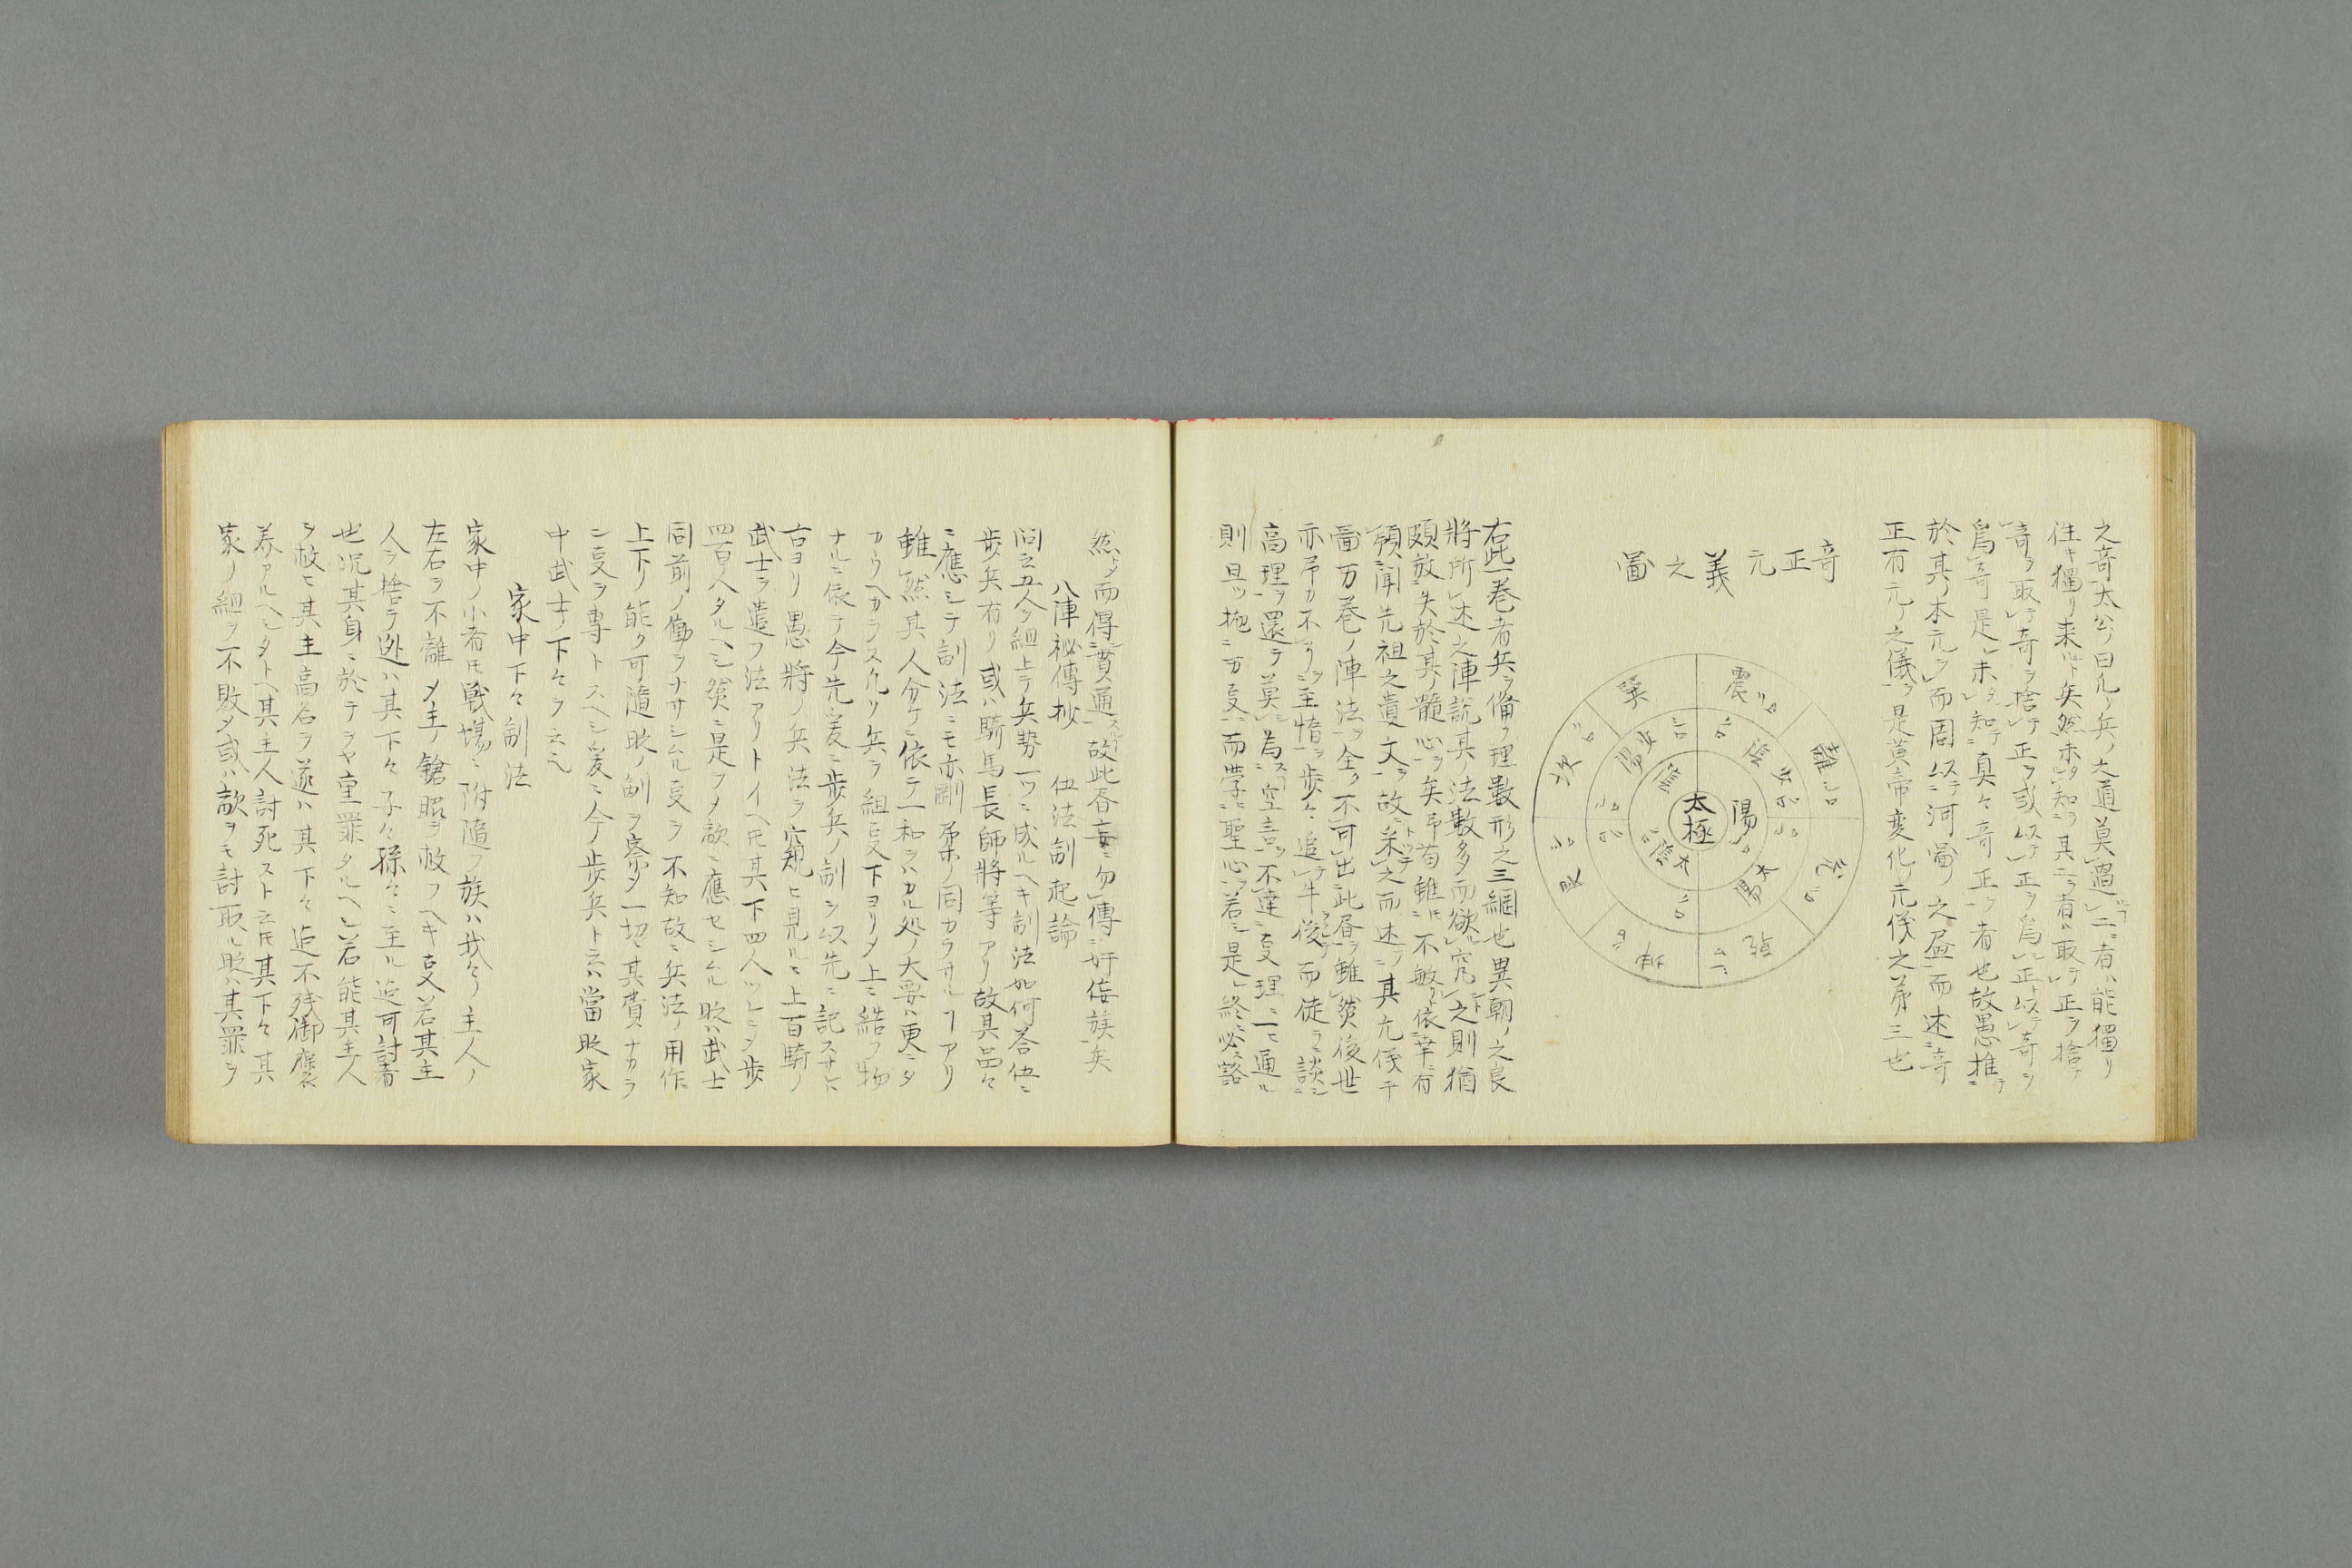 之奇太公ノ曰ル兵ノ大道莫過一ニ一者ハ能獨リ
往キ獨リ来ルト矣然ホタ知ラ其ニラ者ハ取テ正ラ捨テ
奇ラ取テ奇ラ捨テ正ヲ或以テ正ヲ為シ正ト以テ奇ヲ
為奇是レ未タ知テ真々奇正ヲ者也故愚推テ
於其ノ本元ヲ而周以テ河圖ノ之圖而述ニ奇
正有元ノ之儀ヲ是黄帝変化ノ元儀之第三也
奇正元義之圖
太極
陽
陰
陰
太陽
少陽
震
離
兌
乾
坤
艮
坎
巽
右此一巻者兵ヲ備フ理數形之三綱也異朝ノ之良
將所述之陣説其ノ法數多而欲究之則猶
頗放失於其ノ髓心ヲ矣予苟雖ニ不敏ナリト依幸ニ有
預聞先祖之遺文ヲ故ニ采ッテ之而述ニ其元儀千
圖万巻ノ陣法ヲ全ク不可出此昏ヲ雖然後世
亦予カ不リッ至惜ヲ歩々ニ追テ牛後而徒ラニ談シ
高理ヲ還テ莫シ為スコ空言ヲ不達ニ夏理ニ一モ通ル
則且ツ抛ニ万夏ニ而學ヒ聖心ヲ若シ是レ終ニ必ス諮
然メ而得ニ貫通スルコ故此昏妄ニ勿傳ニ奸佞族ニ矣
八陣祕傳抄　伍法制起論
問云五人ヲ組上テ兵勢一ツニ成ルヘキ制法如何答伍ニ
歩兵有リ或ハ騎馬長師將等アリ故其品々
ニ應シテ制法ニモ亦剛柔ノ同カラサルコアリ
雖然其人分ケニ依テ一和ラハカル処ノ大要ハ更ニタ
カウヘカラス凡リ兵ヲ組夏下ヨリメ上ニ結フ物
ナルニ依テ今先爰ニ歩兵ノ制ヲ以先ニ記スサレト
古ヨリ愚將ノ兵法ヲ窺ヒ見ルニ上百騎ノ
武士ヲ遣フ法アリトイヘ圧其下四人ツレニメ歩
四百人タルヘシ然ニ是ヲメ敵ニ應セシムル時ハ武士
同前ノ働ヲナサシムル夏ヲ不知故ニ兵法ノ用作
上下ノ能ク可隨時ノ制ヲ察メ一切ニ其費ナカラ
ン夏ヲ專トスヘシ爰ニ今歩兵ト云ハ當時家
中武士ノ下々ヲ云
家中下々制法
家中ノ小者圧戦場ニ附隨フ族ハ我々ノ主人ノ
左右ヲ不離メ主ノ鎗脇ヲ救フヘキ夏若其主
人ヲ捨テ迯ハ其下々子々孫々ニ至ル迄可討者
也況其身ニ於テヲヤ重罪タルヘシ若能其主人
ヲ救ヒ其主高名ヲ遂ハ其下々迄不残御褒
美アルヘシタトヘ其主人討死スト云圧其下々其
家ノ組ヲ不敗メ或ハ敵ヲモ討取ル時ハ其罪ヲ